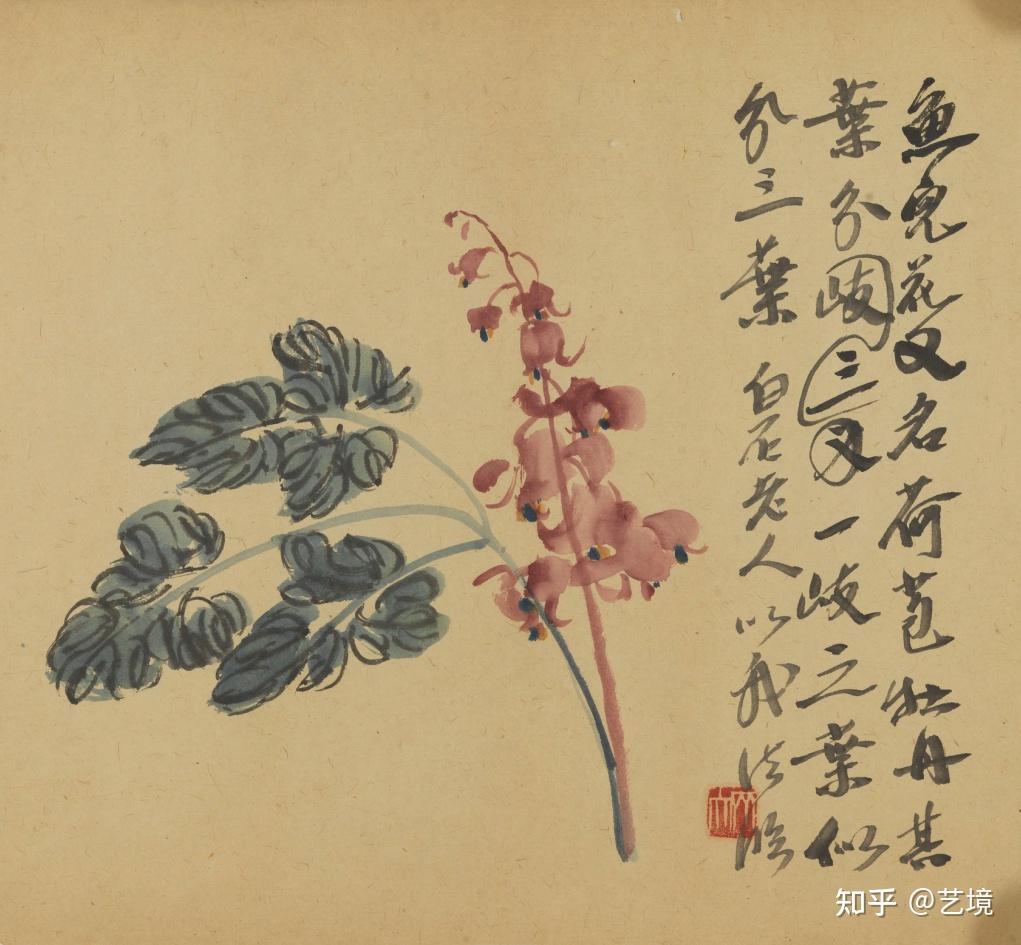 魚兒花又名荷苞牡丹其
葉分岐三叉一岐之葉似
分三葉 白石老人以我法臨
知乎 @艺境